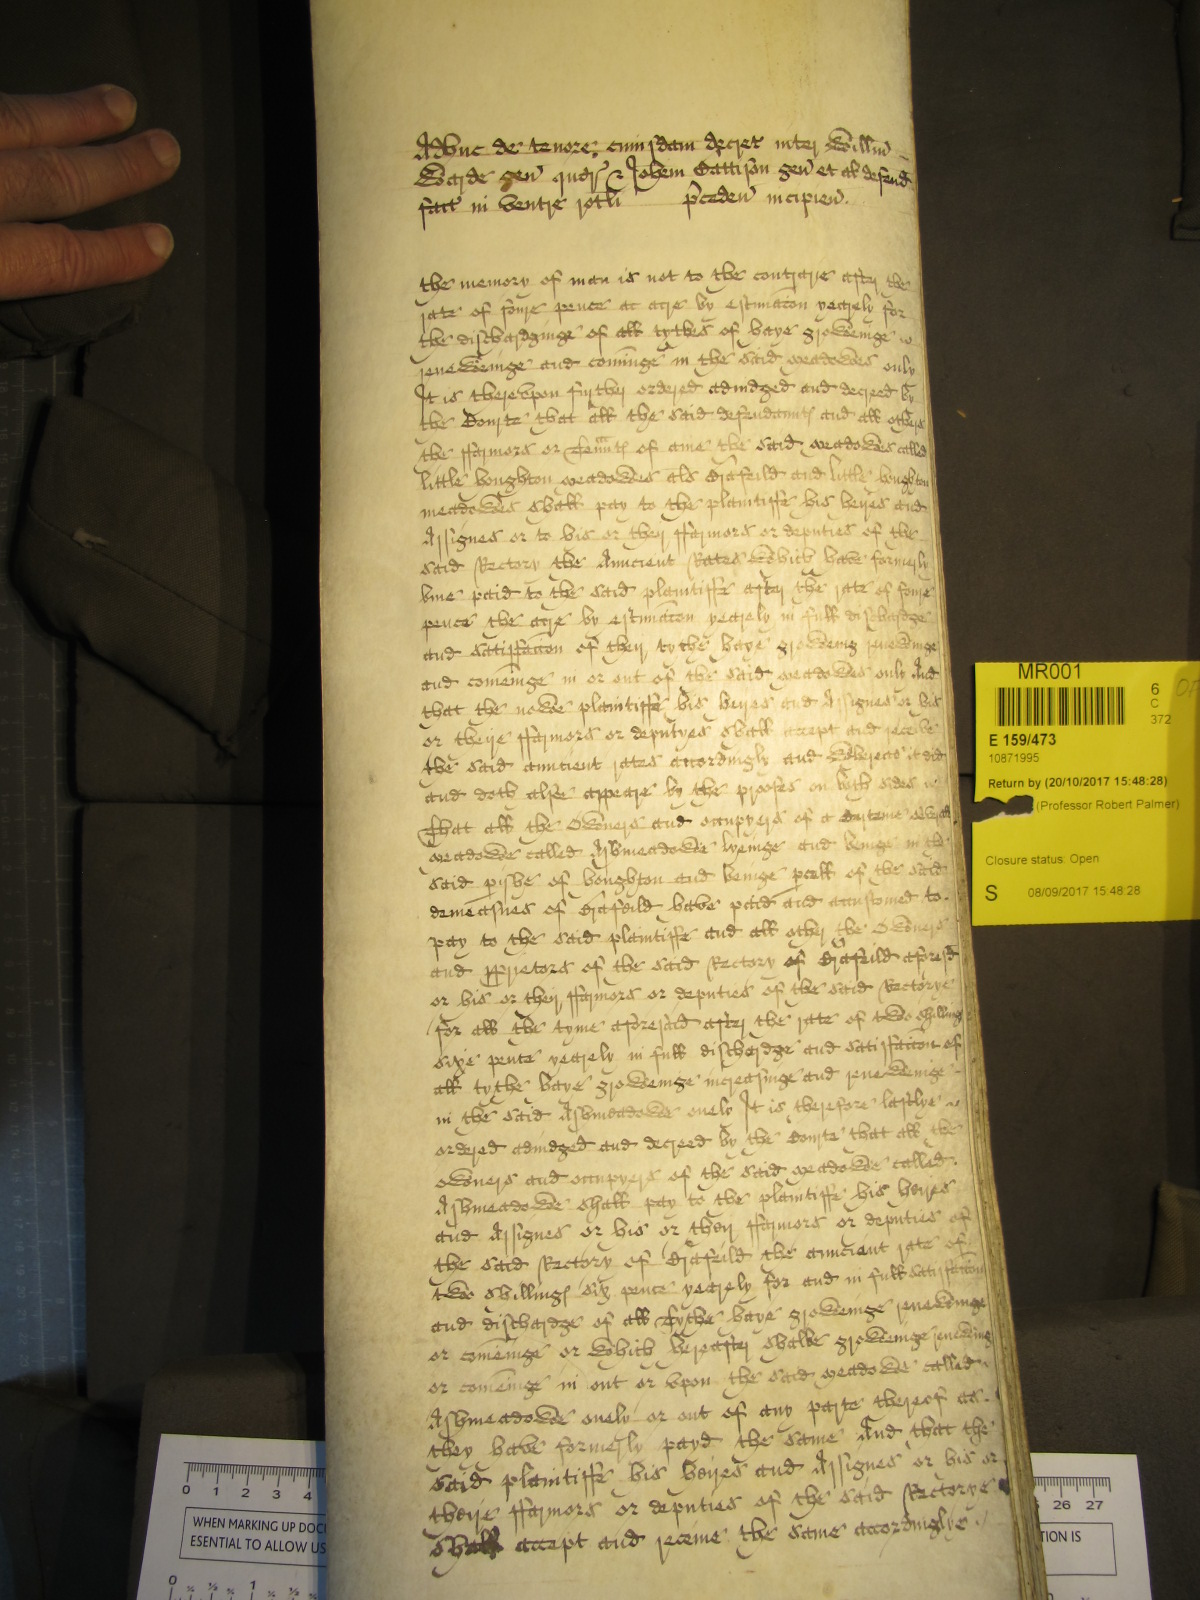 Adhuc de tenore cuiusdam decret inter Willm
Warde gen quer & Johem Cattison gen et al defend
fact in ventre rotli preceden incipien.
the memory of man is not to the contrarie after the
rate of foure pence at acre by estimacon yearely for
the dischardginge of all tythes of haye groweinge
renewinge and cominge in the said meadowes only
It is therevpon further ordered adiudged and decreed by
the Courte that all the said defendaunts and all others
the ffarmors or Tenants of anie the said meadowes called
little boughton meadowes als and little boughton
meadowes shall pay to the plaintiffe his heyres and
Assignes or to his or their ffarmors or deputies of the
said Rectory the Auncient Rates which have formerly
bine paid to the said plaintiffe after the rate of foure
pence the acre by estimacon yearely in full dischardge
and satisfaccon of their tythe haye groweing renewinge
and comeinge in or out of the said meadowes only And
that the nowe plaintiffe his heyres and Assignes or his
or theire ffarmors or deputyes shall accept and receive
the said auncient rates accordingly and Whereas it did
and doth alsoe appeare by the proofes on both sides
That all the Owners and occupyers of a Certeine
meadowe called Ashmeadowe lyeinge and beinge in the
said pishe of boughton and beinge pcell of the said
demeasnes of have paid and accustomed to
pay to the said plaintiffe and all other the Owners
and pprietors of the said Rectory of aforesd
or his or their ffarmors or deputies of the said Rectorye
for all the tyme aforesaid after the rate of two shillings
sixe pence yearely in full dischardge and satisfaccon of
all tythe haye groweinge increasinge and renewinge
in the said Ashmeadowe onely It is therefore lastlye
ordered adiudged and decreed by the Courte that all the
owners and occupyers of the said meadowe called
Ashmeadowe shall pay to the plaintiffe his heyres
and Assignes or his or their ffarmors or deputies of
the said Rectory of the auncient rate of
two shillings six pence yearely for and in full satisfaccon
and dischardge of all Tythe haye groweinge renewinge
or comeinge or which hereafter shalbe groweinge renewing
or comeinge in out or vpon the said meadowe called
Ashmeadowe onely or out of any parte thereof as
they have formerly payd the same And that the
said plaintiffe his heyres and Assignes or his or
theire ffarmors or deputies of the said Rectorye
shall accept and receive the same accordinglye
MR001
6
C
372
E 159/473
10871995
Return by (20/10/2017 15:48:28)
(Professor Robert Palmer)
Closure status: Open
S 08/09/2017 15:48 28
0 1 2 3 4
26 27
WHEN MARKING UP DOC
ESENTIAL TO ALLOW US
TION IS
0 1